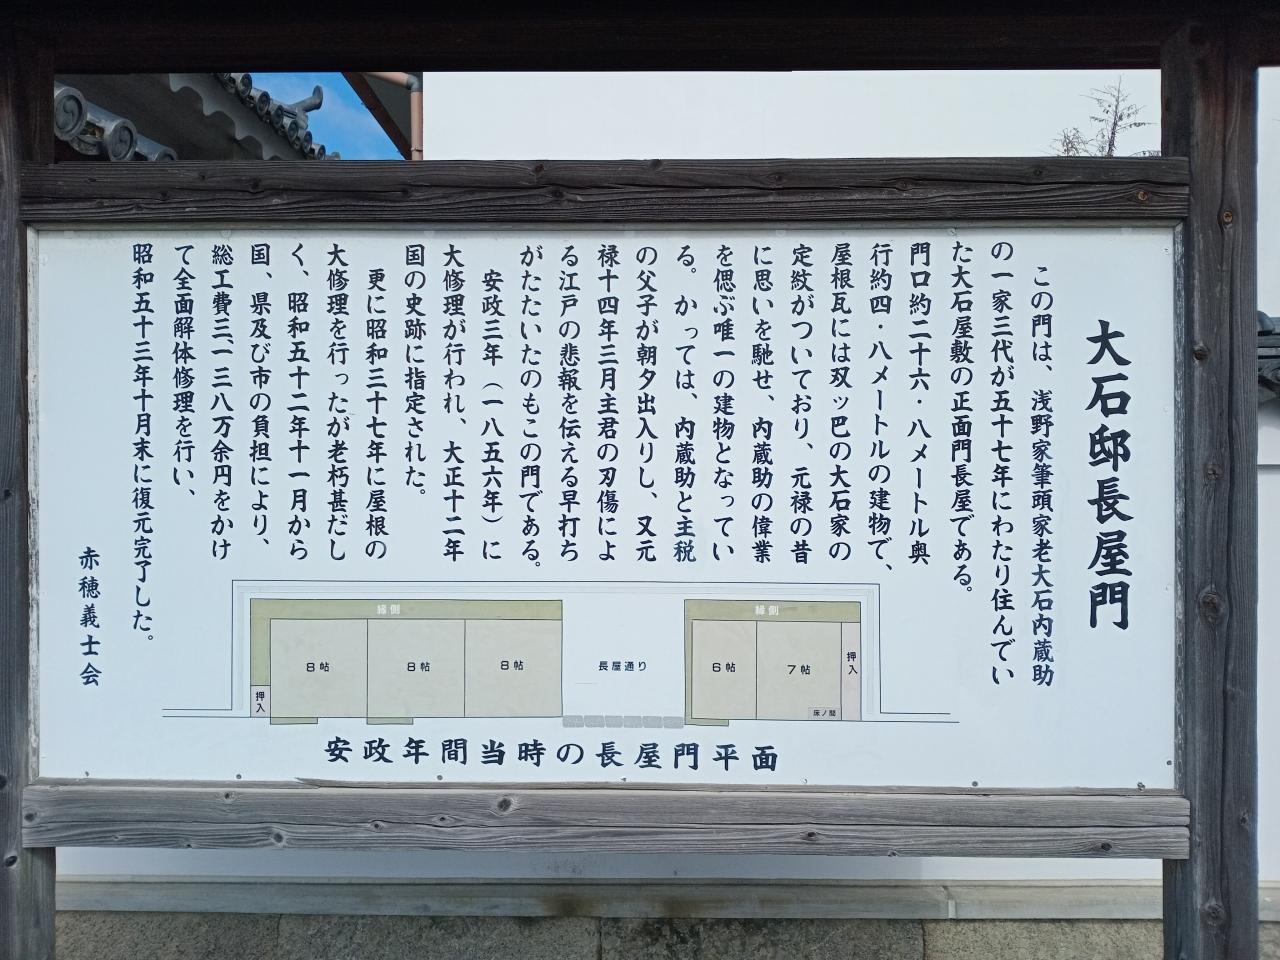 大石邸長屋門
この門は、浅野家筆頭家老大石内蔵助
の一家三代が五十七年にわたり住んでい
た大石屋敷の正面門長屋である。
門口約二十六・八メートル奥
行約四・八メートルの建物で、
屋根瓦には双ッ巴の大石家の
定紋がついており、元禄の昔
に思いを馳せ、内蔵助の偉業
を偲ぶ唯一の建物となってい
る。かっては、内蔵助と主税
の父子が朝夕出入りし、又元
禄十四年三月主君の刃傷によ
る江戸の悲報を伝える早打ち
がたたいたのもこの門である。
安政三年（一八五六年）に
大修理が行われ、大正十二年
国の史跡に指定された。
更に昭和三十七年に屋根の
大修理を行ったが老朽甚だし
く、昭和五十二年十一月から
国、県及び市の負担により、
総工費三、一三八万余円をかけ
て全面解体修理を行い、
昭和五十三年十月末に復元完了した。
赤穂義士会
縁側
縁側
8帖
8帖
8帖
長屋通り
6帖
7帖
押入
押入
床ノ間
安政年間当時の長屋門平面